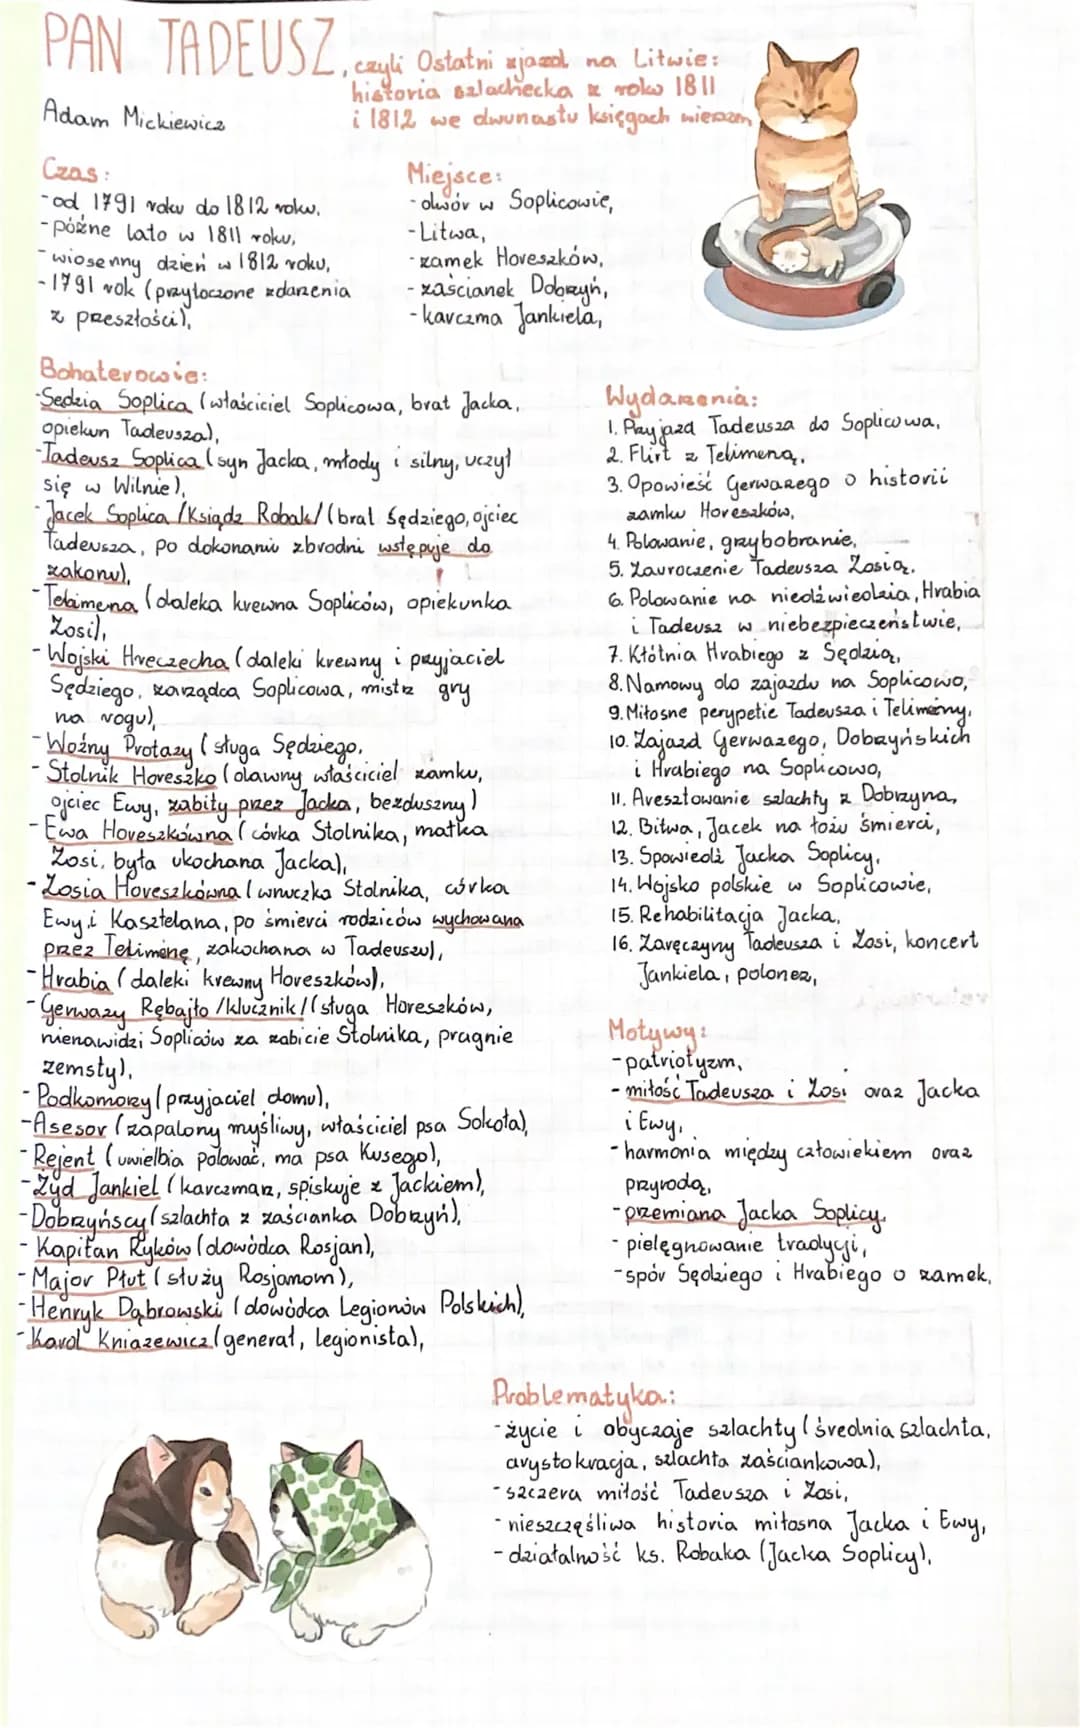 PAN TADEUSZ, czyli Ostatni zjazd na Litwie:
historia szlachecka z roku 1811
i 1812 we dwunastu księgach wierszem
Adam Mickiewicz
Czas:
- od 1791 roku do 1812 roku,
- późne lato w 1811 roku,
- wiosenny dzień w 1812 roku,
- 1791 rok (przytoczone zdarzenia
z przeszłości),
Miejsce:
- dwór w Soplicowie,
- Litwa,
- zamek Horeszków,
- zaścianek Dobrzyń,
- karczma Jankiela,
Bohaterowie:
- Sędzia Soplica (właściciel Soplicowa, brat Jacka,
opiekun Tadeusza),
- Tadeusz Soplica (syn Jacka, młody i silny, uczył
się w Wilnie),
- Jacek Soplica /Ksiądz Robak/ (brat Sędziego, ojciec
Tadeusza, po dokonaniu zbrodni wstępuje do
zakonu),
- Telimena (daleka krewna Sopliców, opiekunka
Zosi),
- Wojski Hreczecha (daleki krewny i przyjaciel
Sędziego, zarządca Soplicowa, mistrz gry
na rogu),
- Woźny Protazy (sługa Sędziego,
- Stolnik Horeszko (dawny właściciel zamku,
ojciec Ewy, zabity przez Jacka, bezduszny)
- Ewa Horeszkówna (córka Stolnika, matka
Zosi, była ukochana Jacka),
- Zosia Horeszkówna (wnuczka Stolnika, córka
Ewy i Kasztelana, po śmierci rodziców wychowana
przez Telimenę, zakochana w Tadeuszu),
- Hrabia (daleki krewny Horeszków),
- Gerwazy Rębajło /klucznik/ (sługa Horeszków,
nienawidzi Sopliców za zabicie Stolnika, pragnie
zemsty),
- Podkomorzy (przyjaciel domu),
- Asesor (zapalony myśliwy, właściciel psa Sokoła),
- Rejent (uwielbia polować, ma psa Kusego),
- Żyd Jankiel (karczmarz, spiskuje z Jackiem),
- Dobrzyńscy (szlachta z zaścianka Dobrzyń),
- Kapitan Ryków (dowódca Rosjan),
- Major Płut (służy Rosjanom),
- Henryk Dąbrowski (dowódca Legionów Polskich),
- Karol Kniazewicz (generał, legionista),
Wydarzenia:
1. Przyjazd Tadeusza do Soplicowa,
2. Flirt z Telimeną,
3. Opowieść Gerwazego o historii
zamku Horeszków,
4. Polowanie, grzybobranie,
5. Zauroczenie Tadeusza Zosią,
6. Polowanie na niedźwiedzia, Hrabia
i Tadeusz w niebezpieczeństwie,
7. Kłótnia Hrabiego z Sędzią,
8. Namowy do zajazdu na Soplicowo,
9. Miłosne perypetie Tadeusza i Telimeny,
10. Zajazd Gerwazego, Dobrzyńskich
i Hrabiego na Soplicowo,
11. Aresztowanie szlachty z Dobrzyna,
12. Bitwa, Jacek na łożu śmierci,
13. Spowiedź Jacka Soplicy,
14. Wojsko polskie w Soplicowie,
15. Rehabilitacja Jacka,
16. Zaręczyny Tadeusza i Zosi, koncert
Jankiela, polonez,
Motywy:
- patriotyzm,
- miłość Tadeusza i Zosi oraz Jacka
i Ewy,
- harmonia między człowiekiem oraz
przyrodą,
- przemiana Jacka Soplicy,
- pielęgnowanie tradycji,
- spór Sędziego i Hrabiego o zamek,
Problematyka:
- życie i obyczaje szlachty (średnia szlachta,
arystokracja, szlachta zaściankowa),
- szczera miłość Tadeusza i Zosi,
- nieszczęśliwa historia miłosna Jacka i Ewy,
- działalność ks. Robaka (Jacka Soplicy),